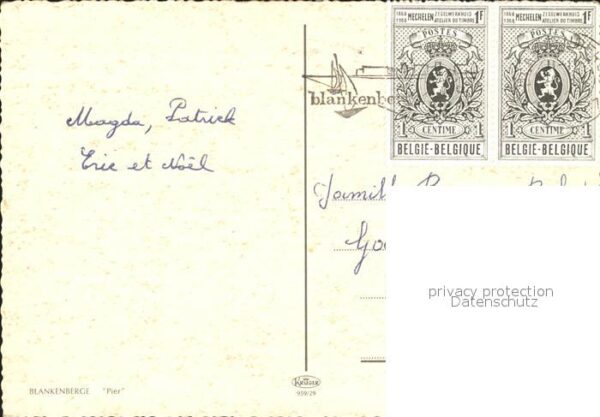 1868 1968 MECHELEN ZEGELWERKHUIS ATELIER DU TIMBRE 1F
1868 1968 MECHELEN ZEGELWERKHUIS ATELIER DU TIMBRE 1F
POSTES
POSTES
blankenbe
1 CENTIME 1
1 CENTIME 1
BELGIE-BELGIQUE
BELGIE-BELGIQUE
Magda, Patrick
Eric et Noël
privacy protection
Datenschutz
BLANKENBERGE "Pier"
KRÜGER
959/29